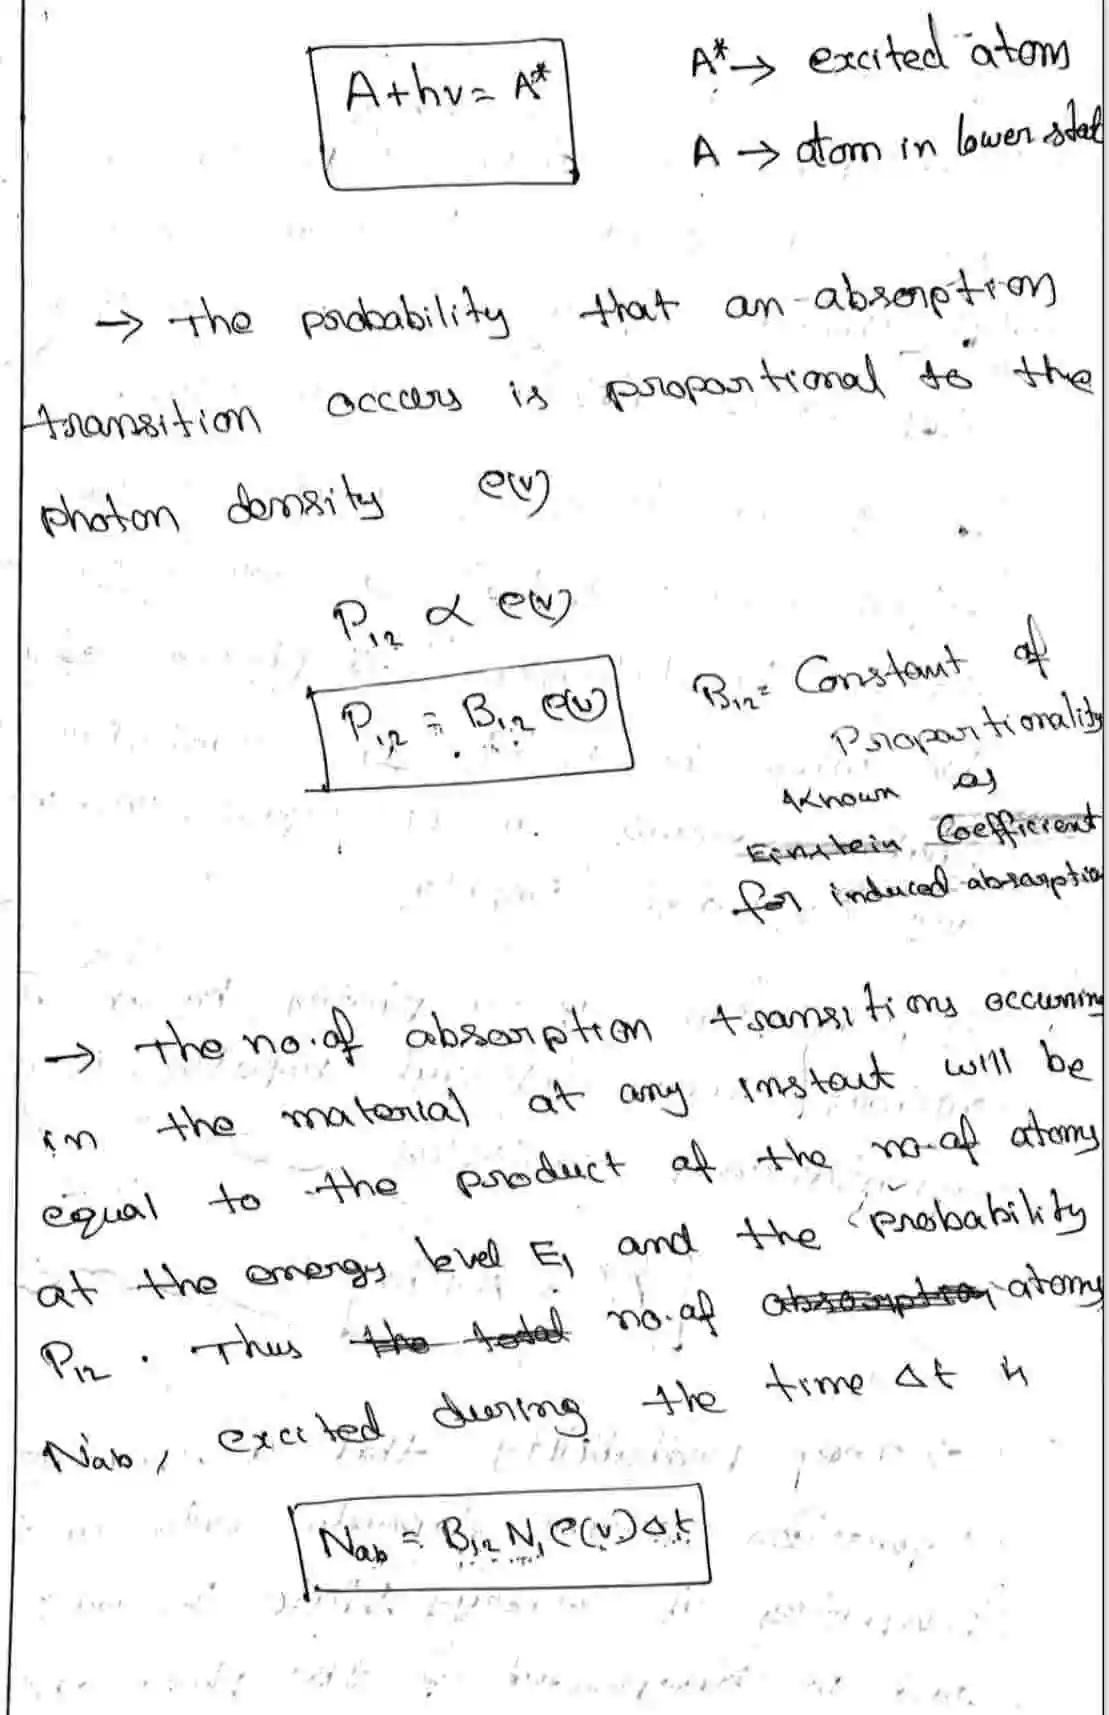 A+hν = A*
A* → excited atom
A → atom in lower stat
→ The probability that an absorption
transition occurs is proportional to the
photon density ρ(ν)
P₁₂ ∝ ρ(ν)
P₁₂ = B₁₂ ρ(ν)
B₁₂ = Constant of
Proportionality
known as
Einstein Coefficient
for induced absorptio
→ The no. of absorption transitions occurring
in the material at any instant will be
equal to the product of the no. of atoms
at the energy level E₁ and the probability
P₁₂. Thus the total no. of absorption atoms
Nab, excited during the time Δt is
Nab = B₁₂ N₁ ρ(ν) Δt